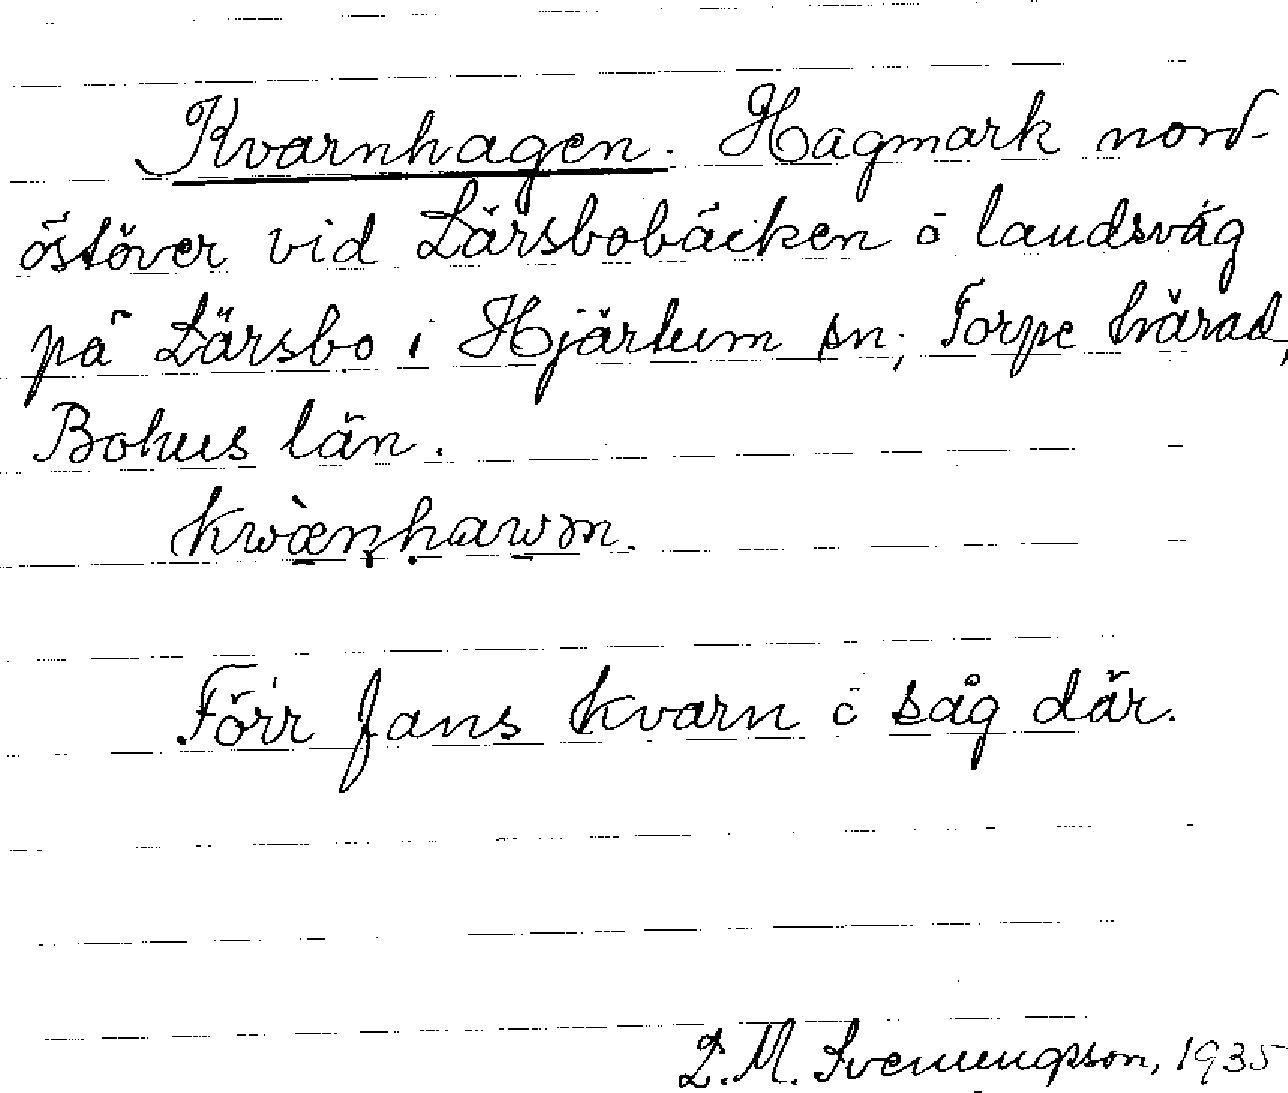 Kvarnhagen. Hagmark nord-
östöver vid Lärsbobäcken o landsväg
på Lärsbo i Hjärtum sn, Torpe härad,
Bohus län.
Förr fans kvarn o såg där.
L. M. Svenungsson, 1935